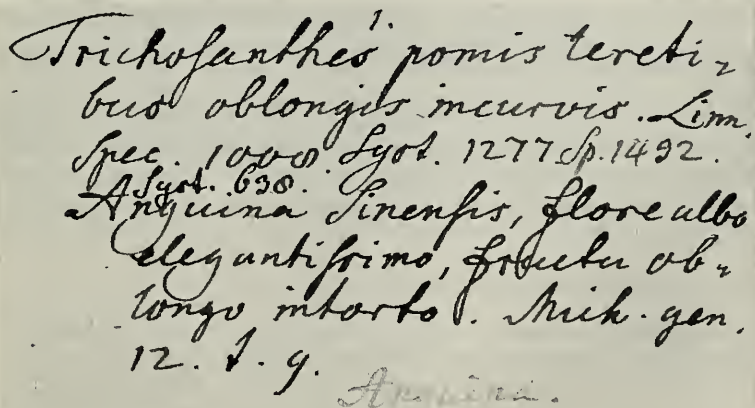 1.
Trichosanthes pomis tereti-
bus oblongis incurvis. Linn.
Spec. 1008. Syst. 1277 Sp. 1432.
Syst. 638.
Anguina Sinensis, flore albo
elegantissimo, fructu ob-
longo intorto. Mich. gen.
12. t. 9.
Anguina.